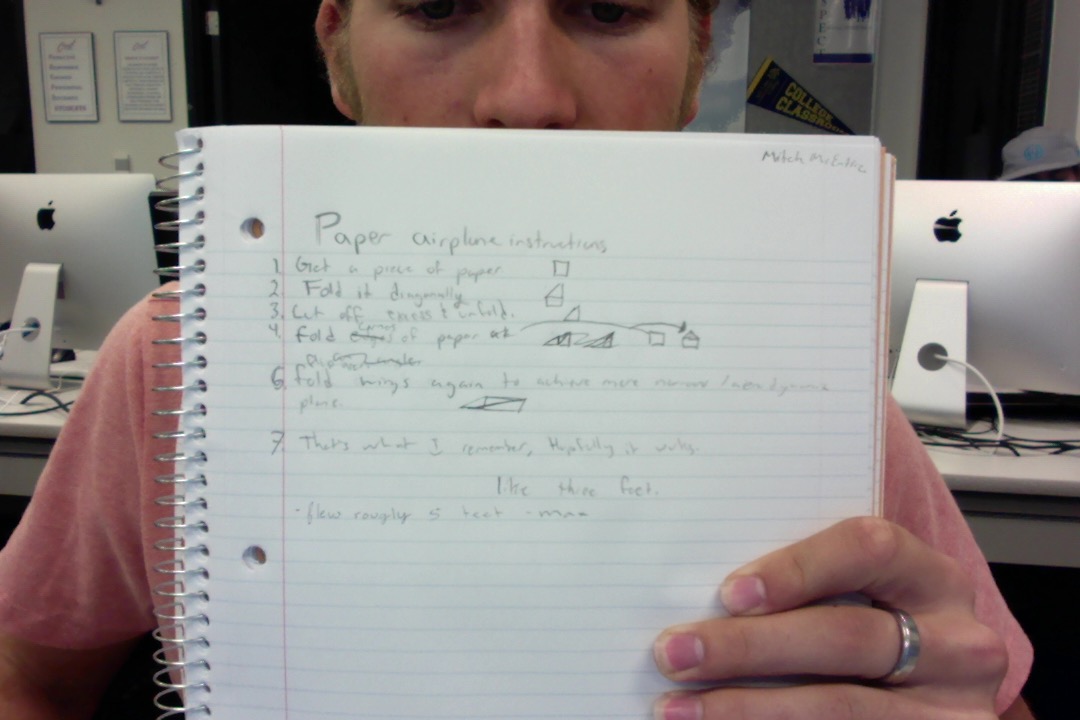 RESPECT
COLLEGE
CLASSROOM
Mitch
Paper airplane instructions
1. Get a piece of paper
2. Fold it diagonally
3. Cut off excess & unfold.
4. Fold corners of paper at
6. fold wings again to achieve more narrow / aerodynamic
plane.
7. That's what I remember, Hopfully it works.
like three feet.
- flew roughly 5 feet - max